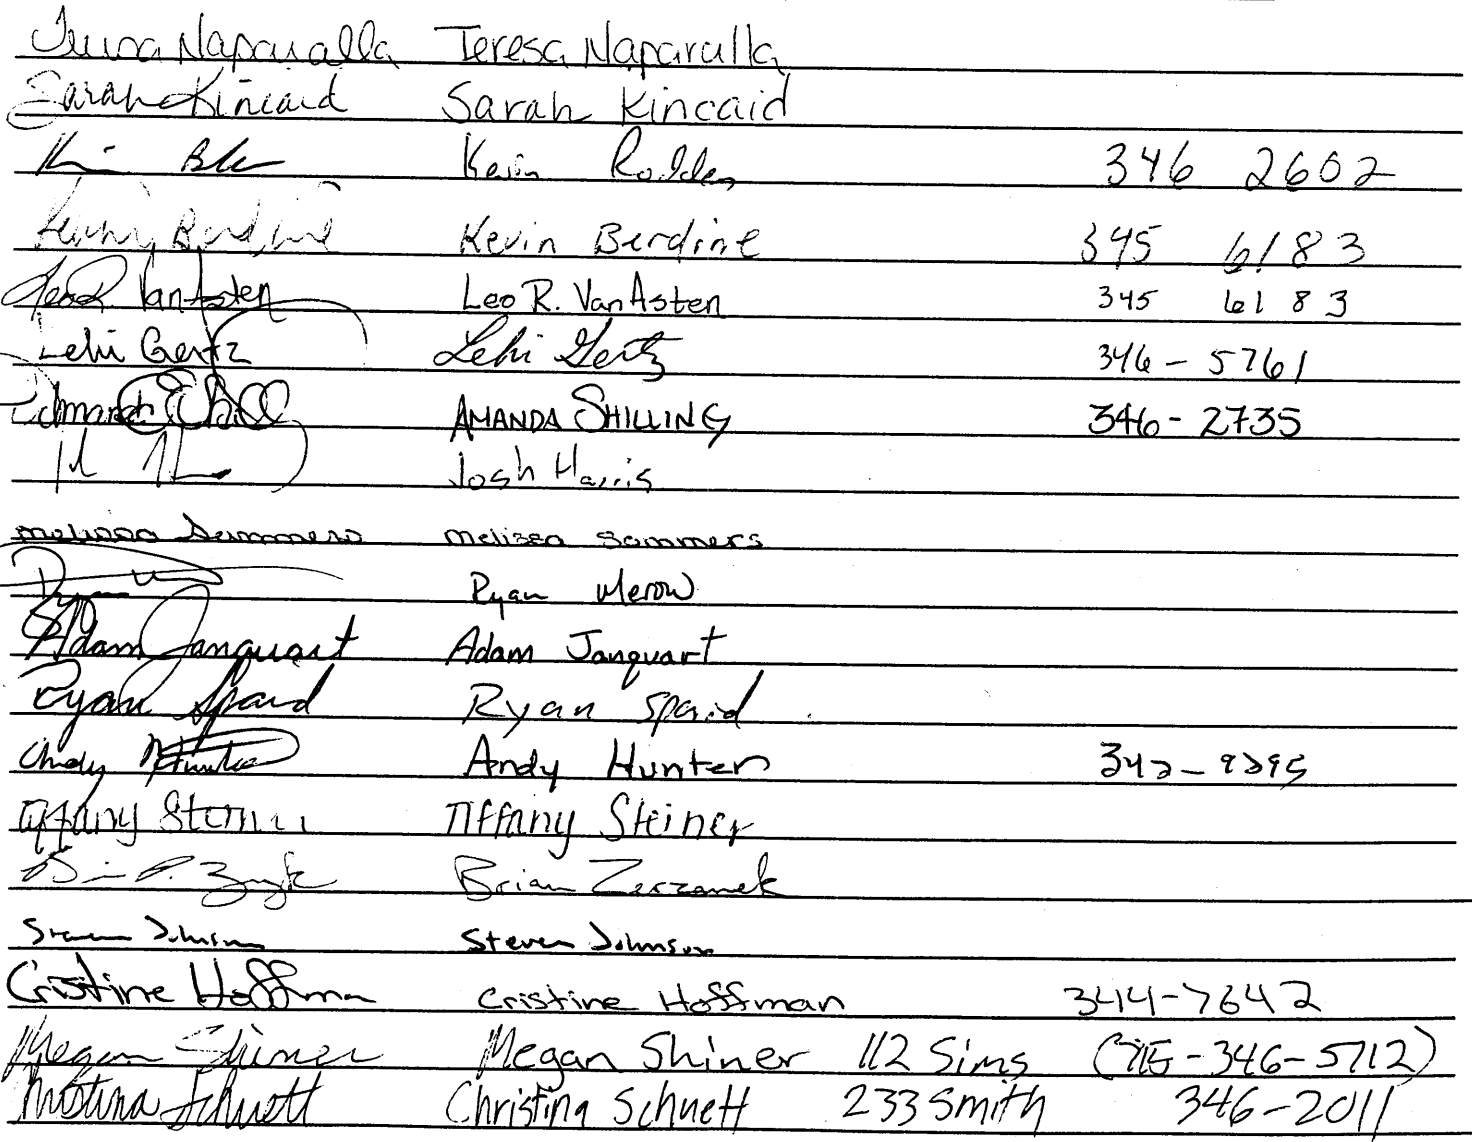 Teresa Naparalla Teresa Naparalla
Sarah Kincaid Sarah Kincaid
Kevin 346 2602
Kevin Berdine 345 6183
Leo R. VanAsten Leo R. VanAsten 345 6183
Lehi Gertz Lehi Gertz 346-5761
AMANDA SHILLING 346-2735
Josh Harris
melissa Sommers melissa sommers
Ryan Ryan Merow
Adam Janquart Adam Janquart
Ryan Spaid Ryan Spaid
Andy Hunter Andy Hunter
Tiffany Steiner Tiffany Steiner
Brian
Steven Johnson Steven Johnson
Cristine Hoffman Cristine Hoffman 344-7642
Megan Shiner Megan Shiner 112 Sims (715-346-5712)
Christina Schuett Christina Schuett 233 Smith 346-2011